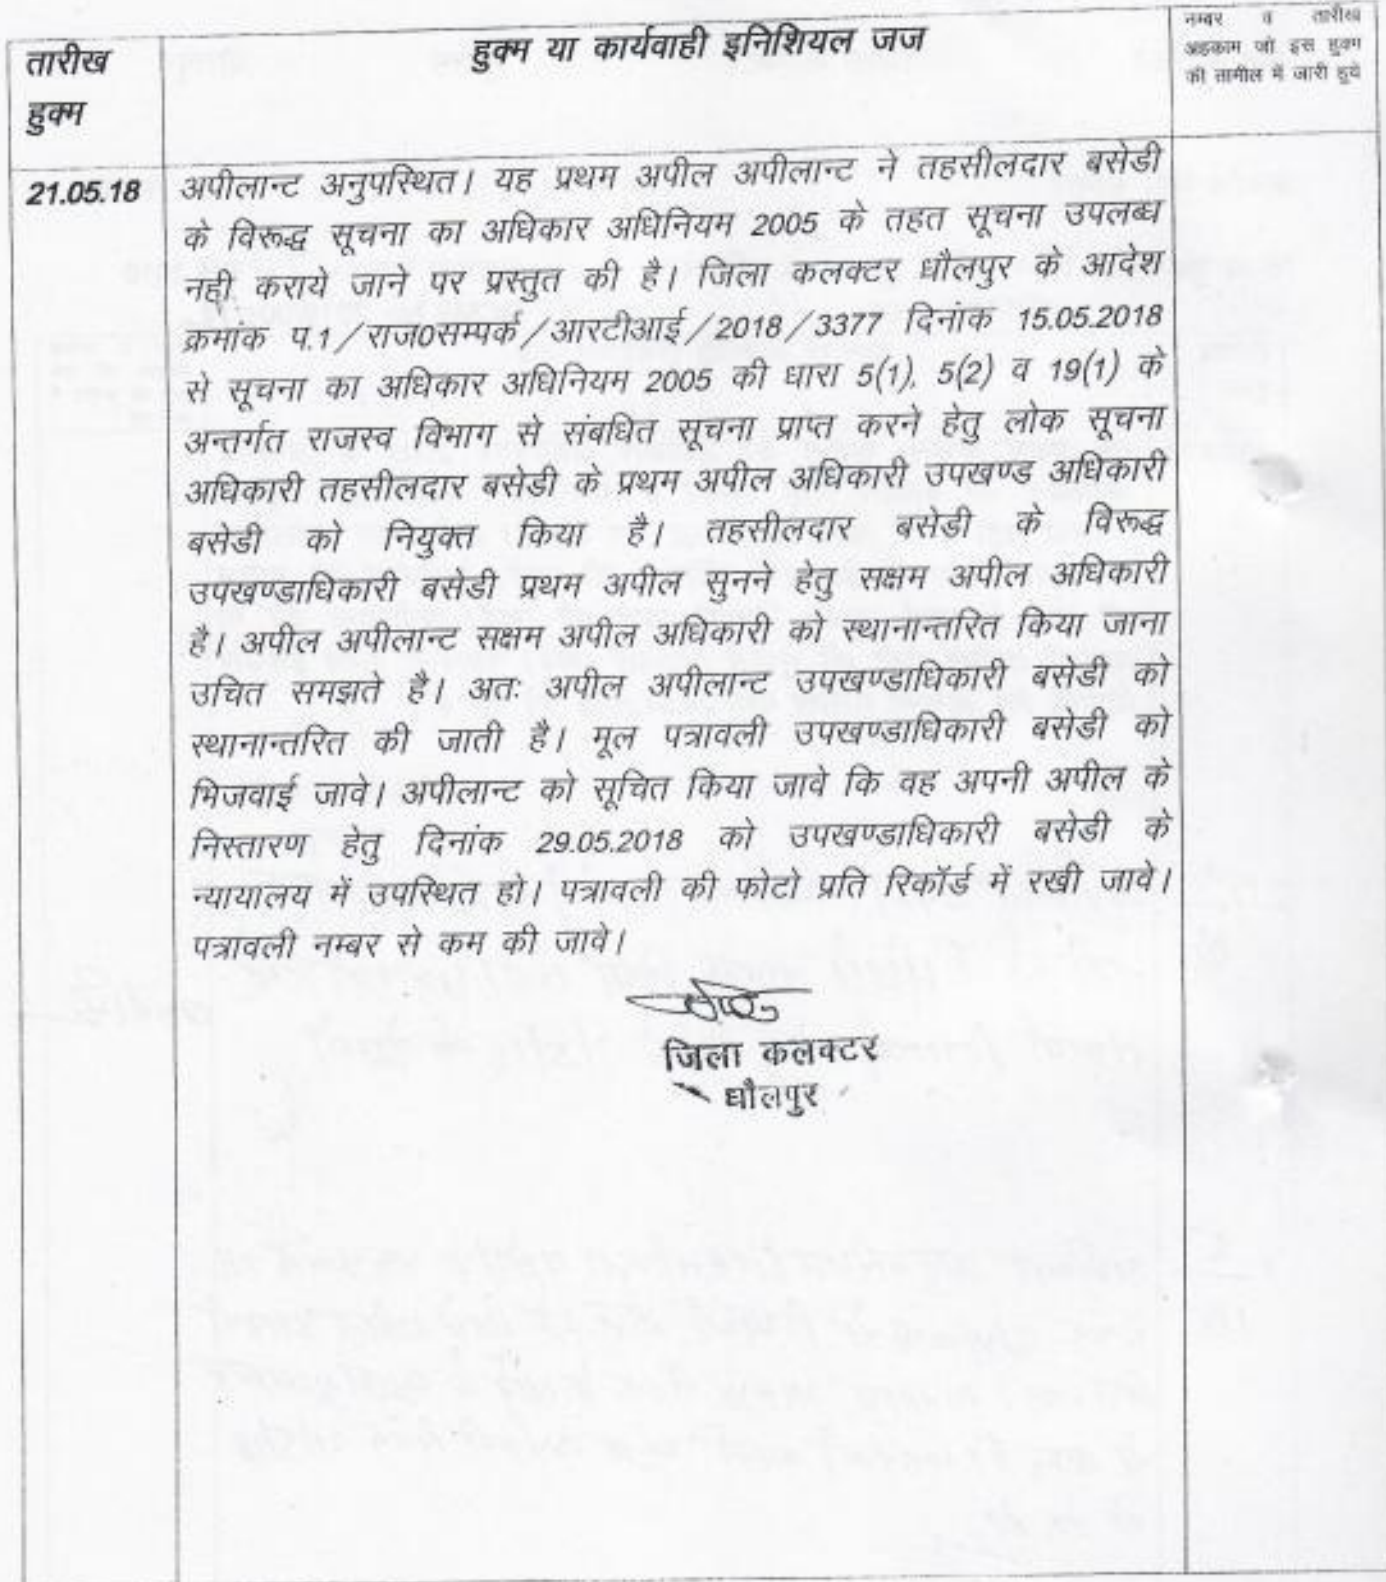 तारीख
हुक्म
हुक्म या कार्यवाही इनिशियल जज
नम्बर व तारीख
अहकाम जो इस हुक्म
की तामील में जारी हुये
21.05.18
अपीलान्ट अनुपस्थित। यह प्रथम अपील अपीलान्ट ने तहसीलदार बसेडी
के विरूद्ध सूचना का अधिकार अधिनियम 2005 के तहत सूचना उपलब्ध
नही कराये जाने पर प्रस्तुत की है। जिला कलक्टर धौलपुर के आदेश
क्रमांक प.1/राज0सम्पर्क/आरटीआई/2018/3377 दिनांक 15.05.2018
से सूचना का अधिकार अधिनियम 2005 की धारा 5(1), 5(2) व 19(1) के
अन्तर्गत राजस्व विभाग से संबधित सूचना प्राप्त करने हेतु लोक सूचना
अधिकारी तहसीलदार बसेडी के प्रथम अपील अधिकारी उपखण्ड अधिकारी
बसेडी को नियुक्त किया है। तहसीलदार बसेडी के विरूद्ध
उपखण्डाधिकारी बसेडी प्रथम अपील सुनने हेतु सक्षम अपील अधिकारी
है। अपील अपीलान्ट सक्षम अपील अधिकारी को स्थानान्तरित किया जाना
उचित समझते है। अतः अपील अपीलान्ट उपखण्डाधिकारी बसेडी को
स्थानान्तरित की जाती है। मूल पत्रावली उपखण्डाधिकारी बसेडी को
भिजवाई जावे। अपीलान्ट को सूचित किया जावे कि वह अपनी अपील के
निस्तारण हेतु दिनांक 29.05.2018 को उपखण्डाधिकारी बसेडी के
न्यायालय में उपस्थित हो। पत्रावली की फोटो प्रति रिकॉर्ड में रखी जावे।
पत्रावली नम्बर से कम की जावे।
जिला कलक्टर
धौलपुर